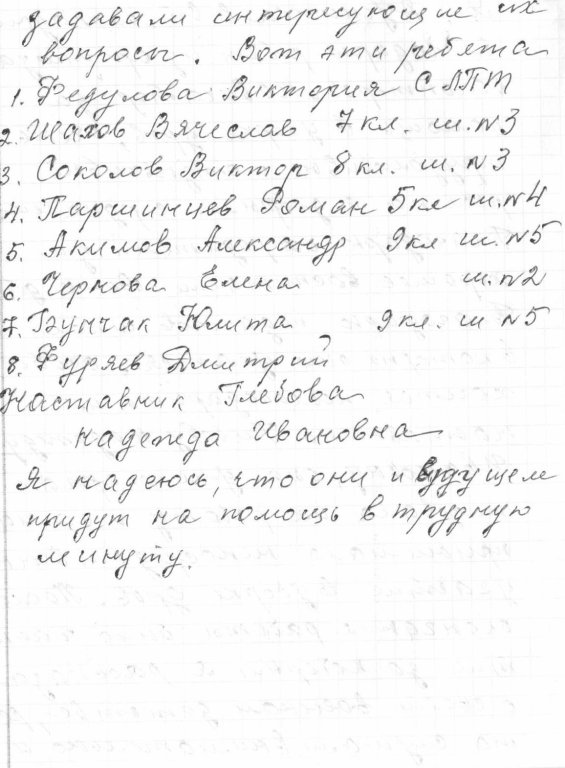 задавали интересующие их
вопросы. Вот эти ребята
1. Федулова Виктория СЛПТ
2. Шахов Вячеслав 7 кл. ш. №3
3. Соколов Виктор 8 кл. ш. №3
4. Паршинцев Роман 5 кл ш. №4
5. Акимов Александр 9 кл ш. №5
6. Чернова Елена ш. №2
7. Бунчак Юлита 9 кл. ш №5
8. Фуряев Дмитрий
Наставник Глебова
Надежда Ивановна
Я надеюсь, что они и в будущем
придут на помощь в трудную
минуту.